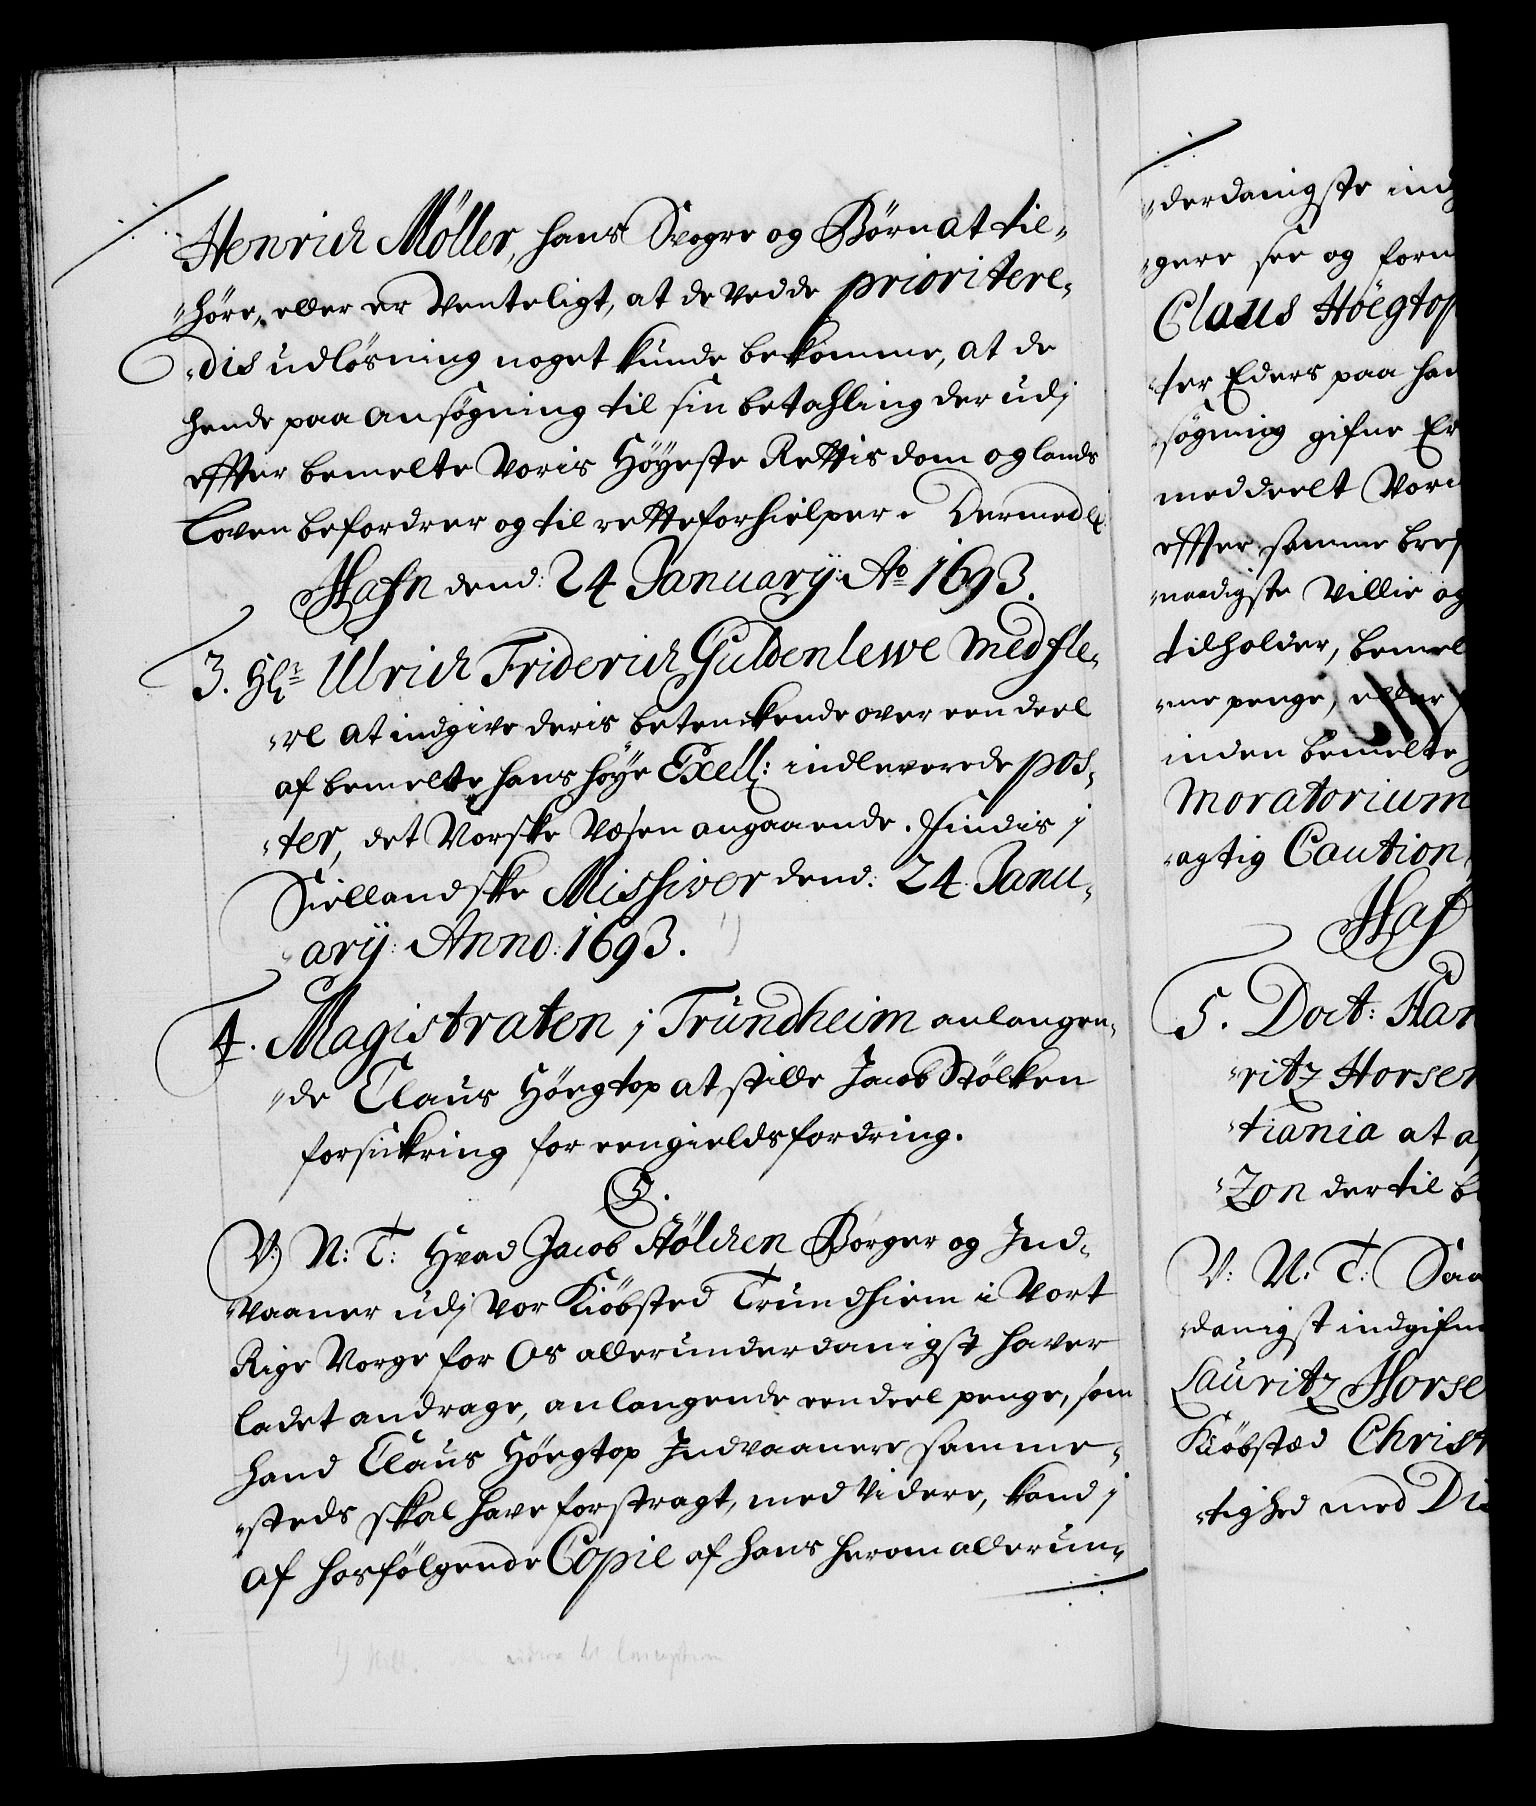 Henrich Möller, hans Svogre og Börn at til-
-höre, eller er Venteligt, at de vedde prioritere-
-dis udlösning noget kunde bekomme, at de
hende paa ansögning til sin betahling der udj
effter bemelte Voris Höyeste Rettis dom og lands
Loven befordrer og til rette forhielper. Dermed &.
Hafn dend: 24 January: Ao 1693.
3. Hr. Ulrich Friderich Guldenlewe med fle-
-re at indgive deris betenckende over een deel
af bemelte hans höye Excell: indleverede pos-
-ter, det Norske Væsen angaaende. Findis j
Siellandske Missiver dend: 24 Janu-
ary: Anno: 1693. 1)
4. Magistraten j Trundheim anlangen-
-de Claus Höegtop at stille Jacob Stölken
forsickring for een gieldsfordring.
C5.
V: N: T: Hvad Jacob Stölchen Borger og Ind-
-vaaner udj Vor Kiöbsted Trundhiem i Vort
Rige Norge for Os allerunderdanigst haver
ladet andrage, anlangende een deel penge, som
hand Claus Höegtop Indvaanere samme-
-steds skal have forstragt, med Videre, kand j
af hosfölgende Copie af hans herom allerun-
1)
-derdanigste ind
-gere see og forn
Claus Höegtop
-ter Eders paa han
-sögning gifne Er
meddeelt Vor
effter samme bref
-naadigste Villie og
tilholder, bemel
-me penge, eller
inden bemelte
Moratorium
-agtig Caution
Haf
5. Doct: Han
-ritz Horsen
-tiania at a
-Zon der til b
V: N: T: Saa
-danigst indgifne
Lauritz Horse
Kiöbsted Christ
-tighed med Di